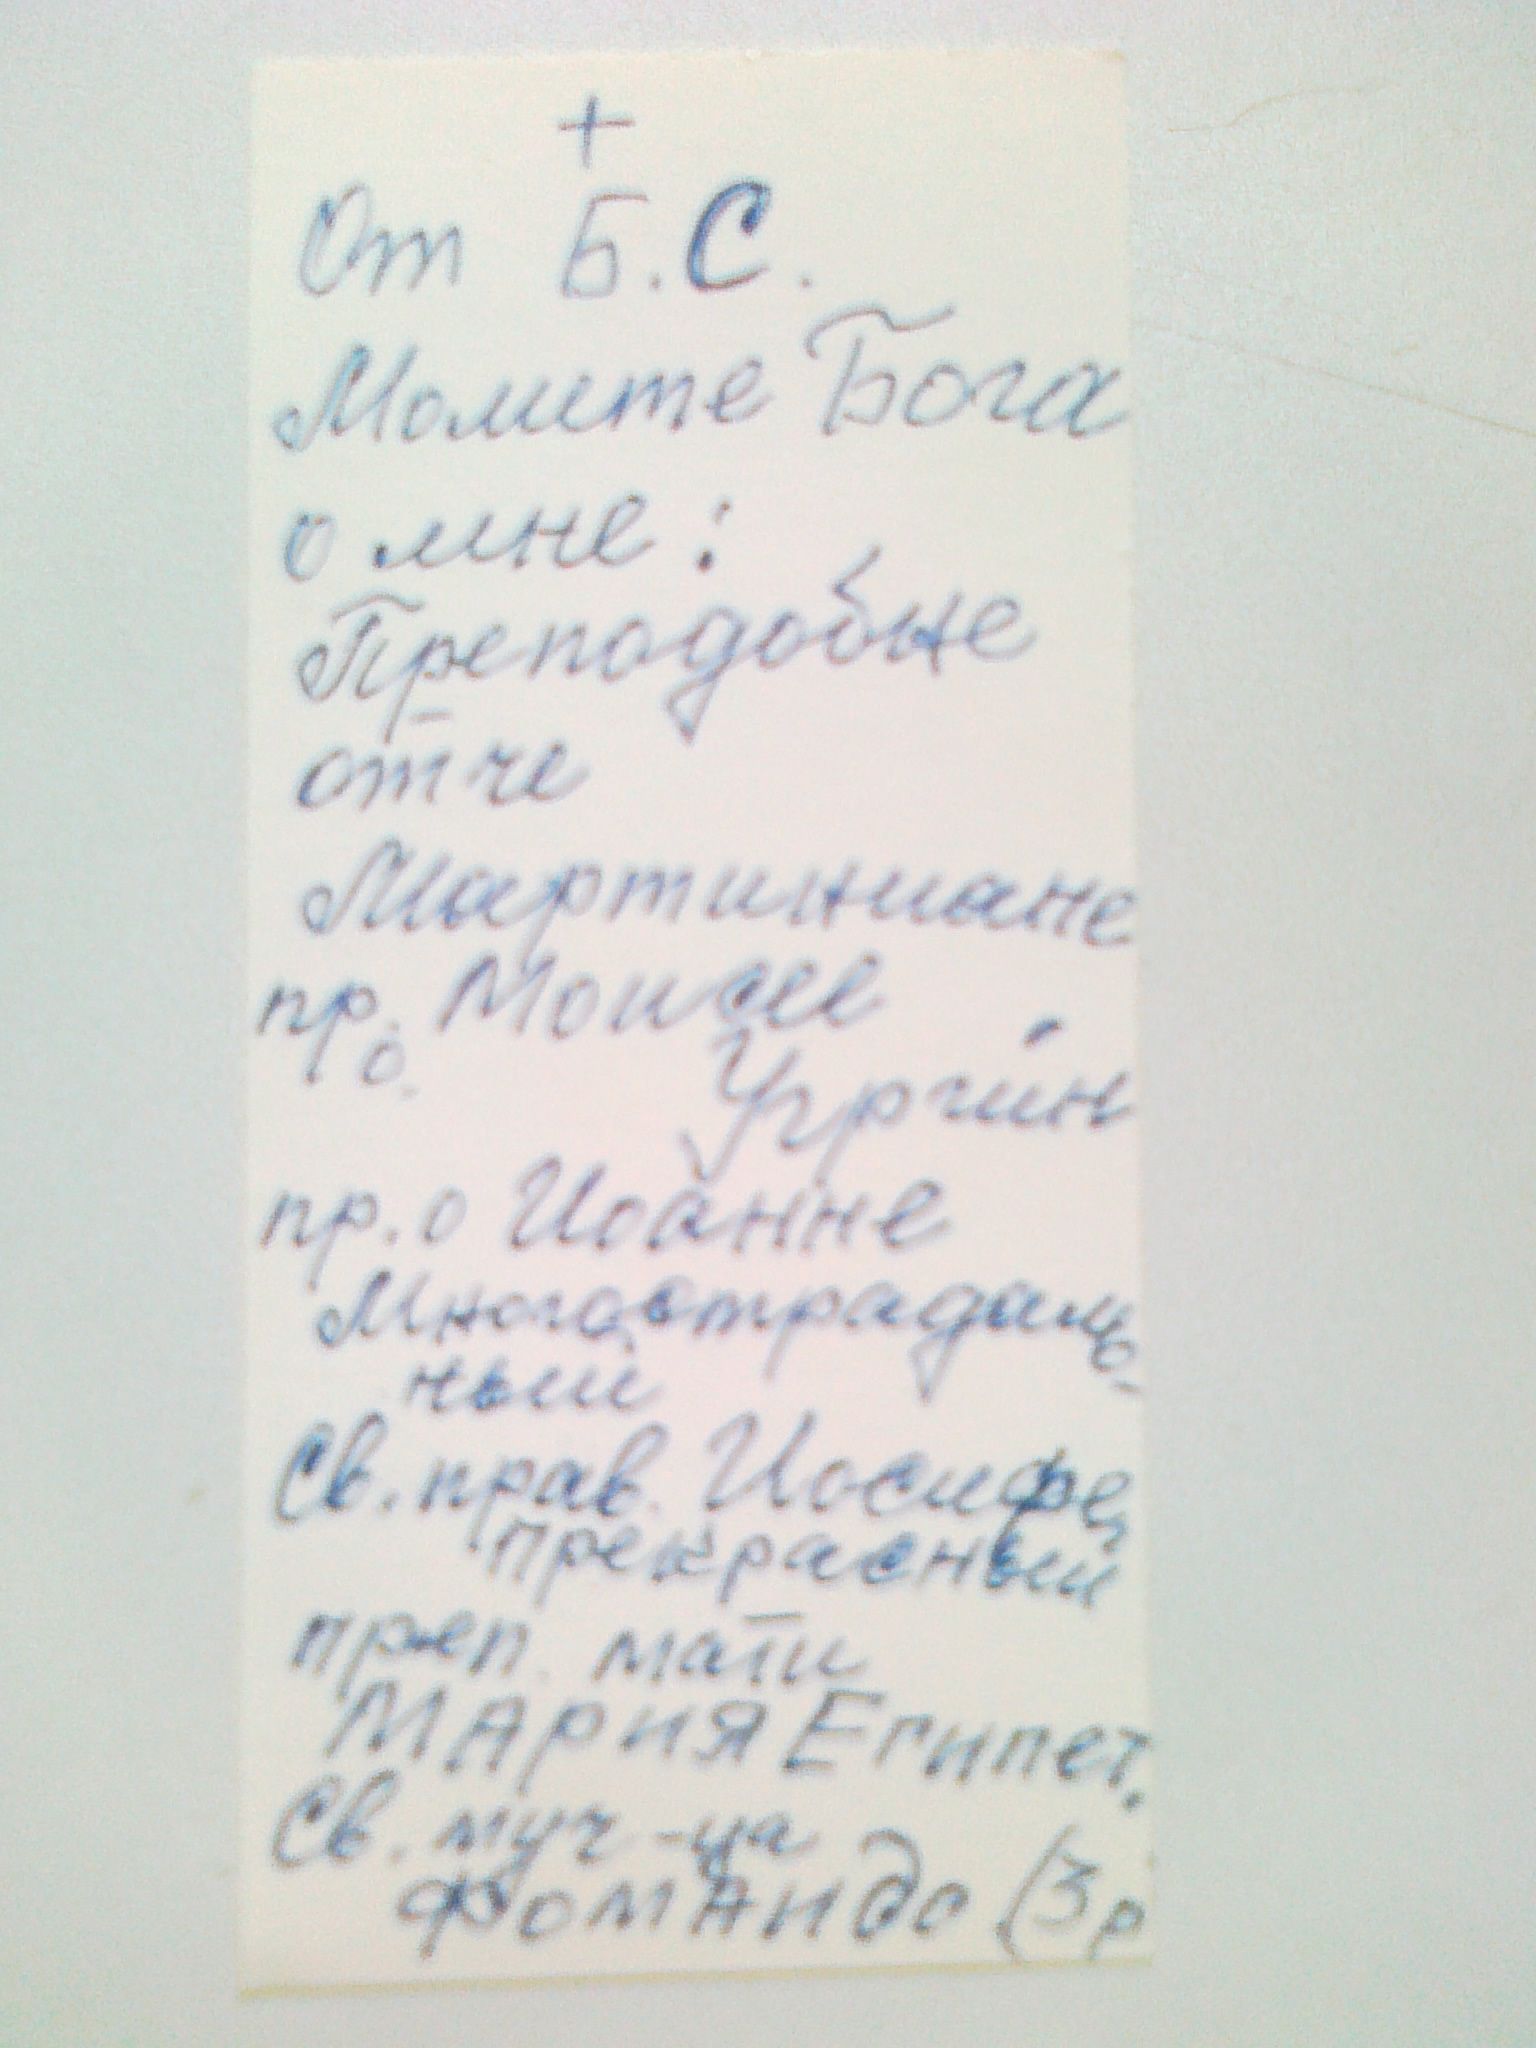 +
От Б.С.
Молите Бога
о мне:
Преподобне
отче
Мартиниане
пр. Моисее
о. Угрин
пр. о Иоанне
Многострадаль-
ный
Св. прав. Иосифе
прекрасный
преп. мати
Мария Египет.
Св. муч-ца
Фомаидо (3 р